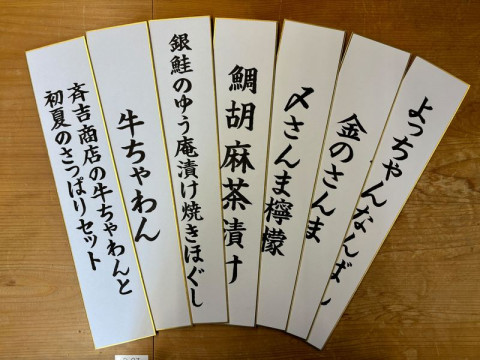 よっちゃんなんばん
金のさんま
〆さんま檸檬
鯛胡麻茶漬け
銀鮭のゆう庵漬け焼きほぐし
牛ちゃわん
斉吉商店の牛ちゃわんと
初夏のさっぱりセット